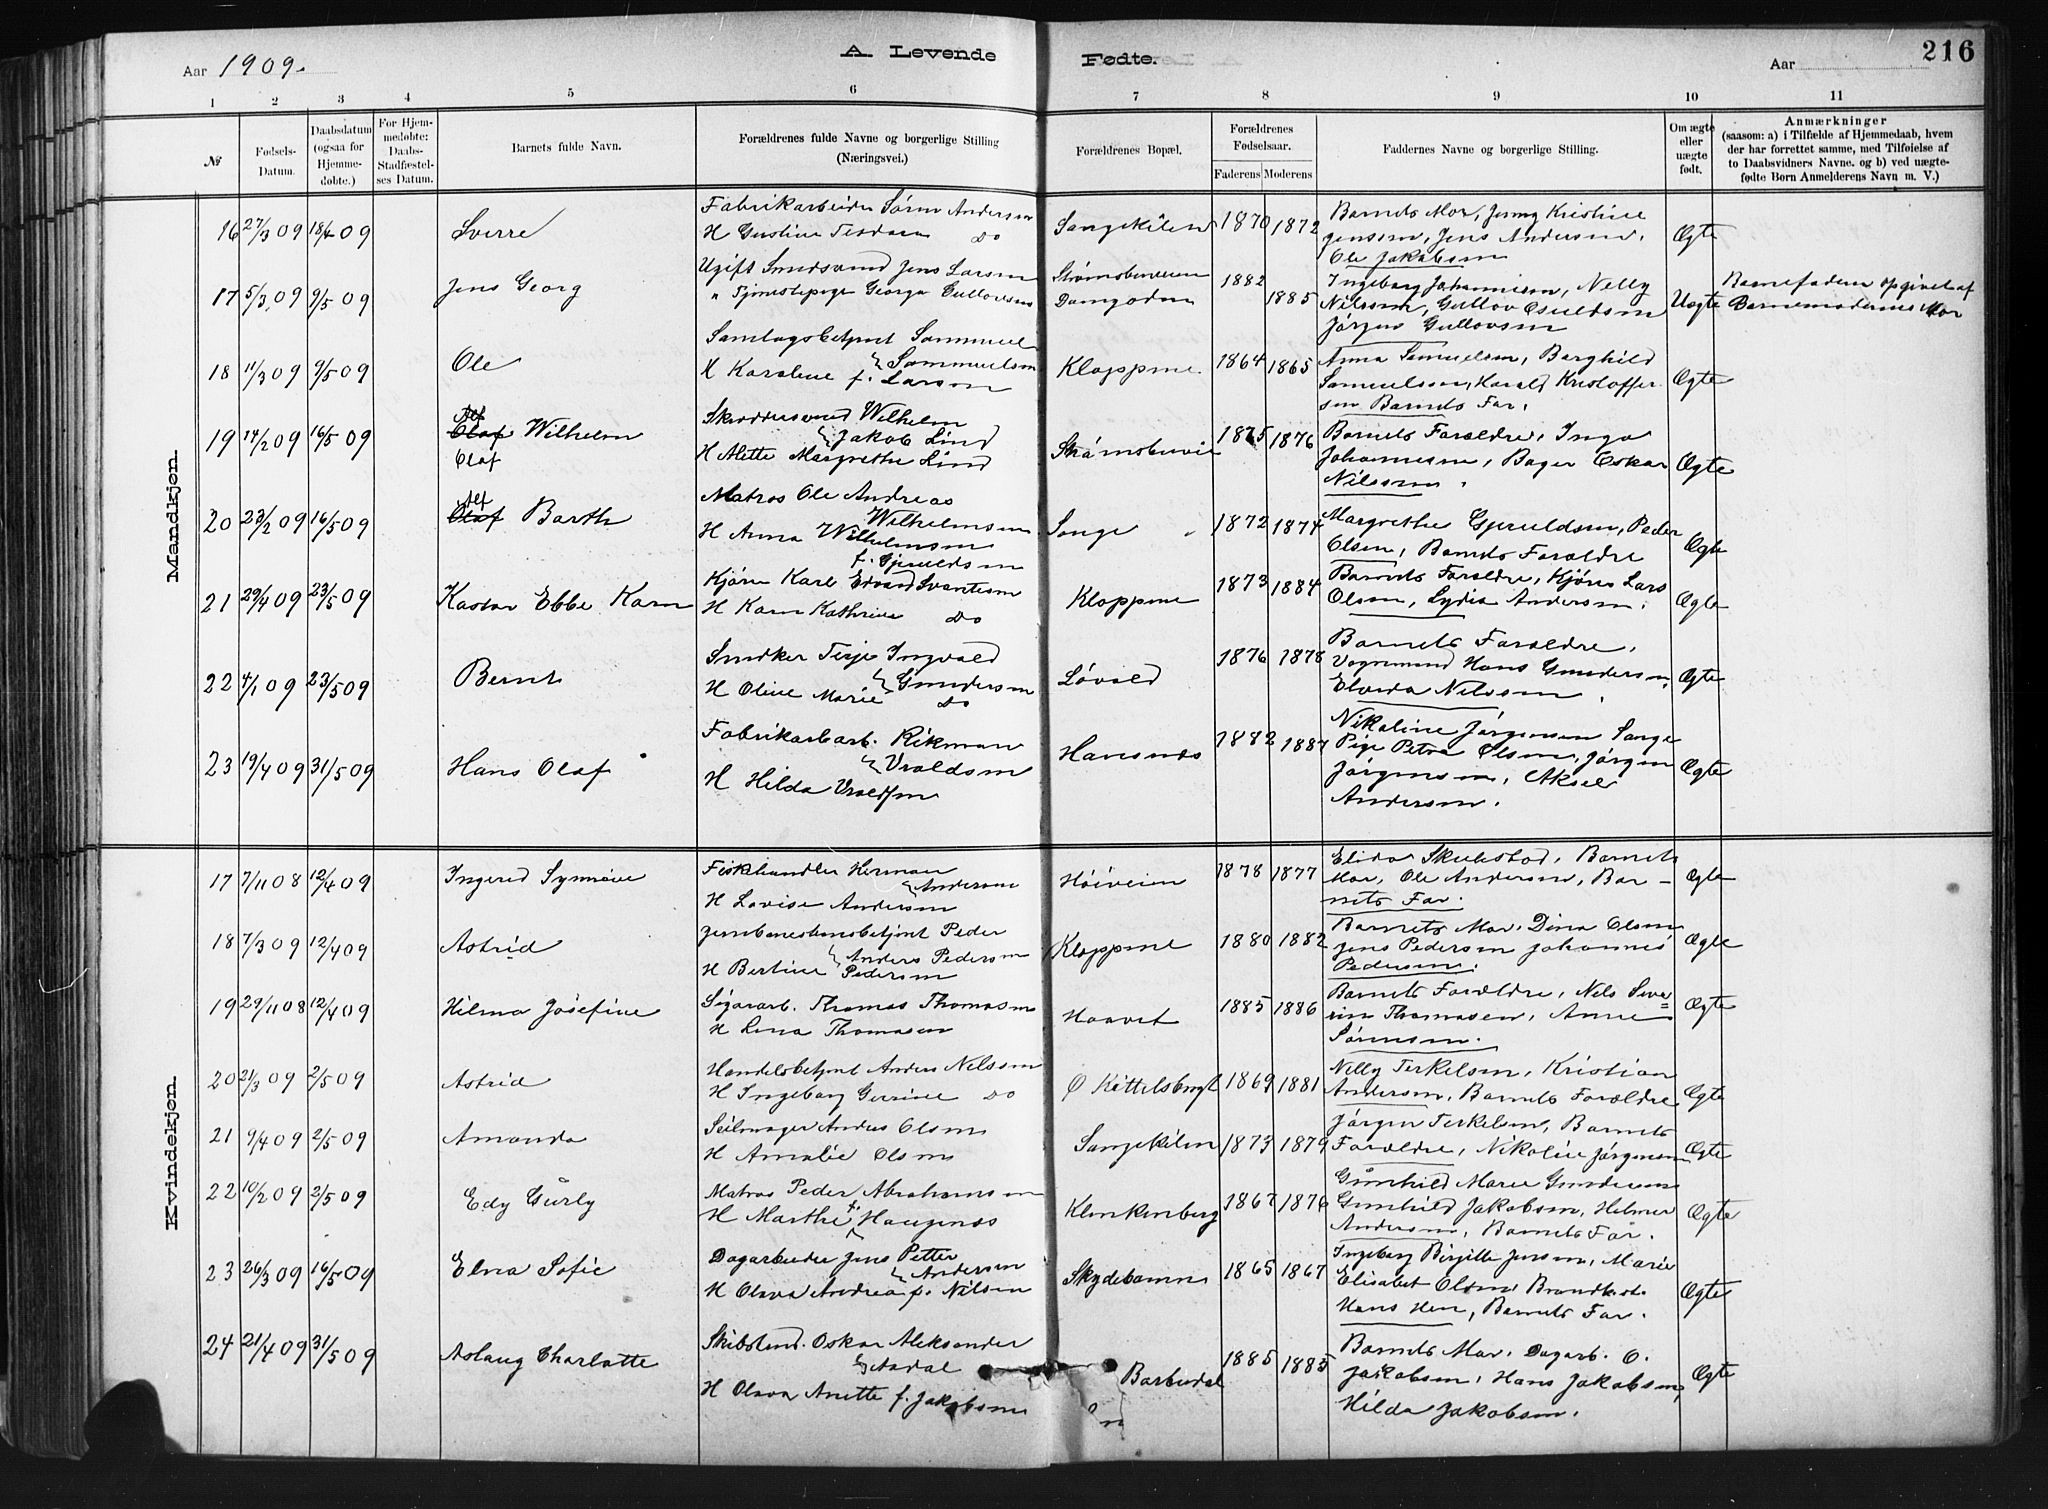 Aar 1909.
A. Levende
Fødte.
Aar
216
1 2 3 4 5 6 7 8 9 10 11
№
Fødsels-
Datum.
Daabsdatum
(ogsaa for
Hjemme-
døbte.)
For Hjem-
medøbte:
Daabs-
Stadfæstel-
ses Datum.
Barnets fulde Navn.
Forældrenes fulde Navne og borgerlige Stilling
(Næringsvei.)
Forældrenes Bopæl.
Forældrenes
Fødselsaar.
Faderens Moderens
Faddernes Navne og borgerlige Stilling.
Om ægte
eller
uægte
født.
Anmærkninger
(saasom: a) i Tilfælde af Hjemmedaab, hvem
der har forrettet samme, med Tilføielse af
to Daabsvidners Navne. og b) ved uægte-
fødte Børn Anmelderens Navn m. V.)
Mandkjøn.
16 27/3 09 18/4 09 Sverre
Fabrikarbeider Søren Andersen
H Gustine Do
Songekilen 1870 1872
Barnets Mor, Jenny Kristine
Jensen, Jens Andersen,
Ole Jakobsen
Ægte
17 5/3 09 9/5 09 Jens Georg
Ugift Smedsvend Jens Larsen
" Tjenestepige Georga Gullovsen
Strømsbuveien 1882
1885
Ingeborg Johannesen, Nelly
Nilssen, Gullov
Jørgen Gullovsen
Uegte
Barnefaderen opgivet af
Barnemoderens Mor
18 11/3 09 9/5 09 Ole
Samlagsbetjent Sammuel
Sammuelsen
H Karoline f. Larsen
Kloppene 1864 1865
Anna Samuelsen, Borghild
Samuelsen, Harald Kristoffer
sen Barnets Far.
Ægte
19 14/2 09 16/5 09 Alf Olaf Wilhelm
Olaf
Skræddersvend Wilhelm
Jakob Lind
H Alette Margrethe Lind
Strømsbuvei 1875 1876
Barnets Forældre, Inga
Johannesen, Bager Oskar
Nilssen.
Ægte
20 23/2 09 16/5 09 Alf Olaf Barth
Matros Ole Andreas
Wilhelmsen
H Anna Wilhelmsen
f. Gjeruldsen
Songe 1872 1874
Margrethe Gjeruldsen, Peder
Olsen, Barnets Forældre
Ægte
21 29/4 09 23/5 09 Kastor Ebbe Karn
Kjører Karl Edvard Svantesen
H Karn Kathrine Do
Kloppene 1873 1884
Barnets Forældre, Kjører Lars
Olsen, Lydia Andersen.
Ægte
22 4/1 09 23/5 09 Bernt
Snedker Terje Ingvald
Gundersen
H Oline Marie Do
Løvold 1876 1878
Barnets Forældre,
Vognmand Hans Gundersen,
Elvida Nilssen.
Ægte
23 19/4 09 31/5 09 Hans Olaf
Fabrikarb. Rikman
Vroldsen
H Hilda Vroldsen
Havsnæs 1882 1887
Nikoline Jørgensen Songe
Pige Petra Olsen, Jørgen
Jørgensen, Aksel
Andersen.
Ægte
Kvindekjøn.
17 7/11 08 12/4 09 Ingerid Synnøve
Fiskhandler Herman
Andersen
H Lovise Andersen
Høiveien 1878 1877
Elida Skibstad, Barnets
Mor, Ole Andersen, Bar-
nets Far.
Ægte
18 7/3 09 12/4 09 Astrid
Jernbanestansbetjent Peder
Anders Pedersen
H Bertine Pedersen
Kloppene 1880 1882
Barnets Mor, Dina Olsen
Jens Pedersen Johannes
Pedersen.
Ægte
19 29/11 08 12/4 09 Hilma Josefine
Sigararb. Thomas Thomasen
H Lina Thomasen
Haavet 1885 1886
Barnets Forældre, Nils Seve=
rin Thomasen, Anne
Sørensen.
Ægte
20 21/3 09 2/5 09 Astrid
Handelsbetjent Anders Nilssen
H Ingeborg Gurine Do
Ø Kittelsbugt 1869 1881
Nelly Terkelsen, Kristian
Andersen, Barnets Forældre
Ægte
21 9/4 09 2/5 09 Amanda
Seilmager Anders Olsen
H Amalie Olsen
Songekilen 1873 1879
Jørgen Terkelsen, Barnets
Forældre, Nikoline Jørgensen
Ægte
22 10/2 09 2/5 09 Edy Gürly
Matros Peder Abrahamsen
H Marthe f. Haugenæs
Klenkenberg 1867 1876
Günhild Marie Gundersen
Gunhild Jakobsen, Helmer
Andersen, Barnets Far.
Ægte
23 26/3 09 16/5 09 Elna Sofie
Dagarbeider Jens Petter
Andersen
H Olava Andrea f. Nilsen
Skydebanen 1865 1867
Ingeborg Birgitte Jensen, Marie
Elisabet Olsen Brandkst.
Hans Hen, Barnets Far.
Ægte
24 21/4 09 31/5 09 Aslaug Charlotte
Skibstmd. Oskar Aleksander
Aadal
H Olava Anette f. Jakobsen
Barbudal 1885 1885
Barnets Mor, Dagarb. O.
Jakobsen, Hans Jakobsen,
Hilda Jakobsen.
Ægte